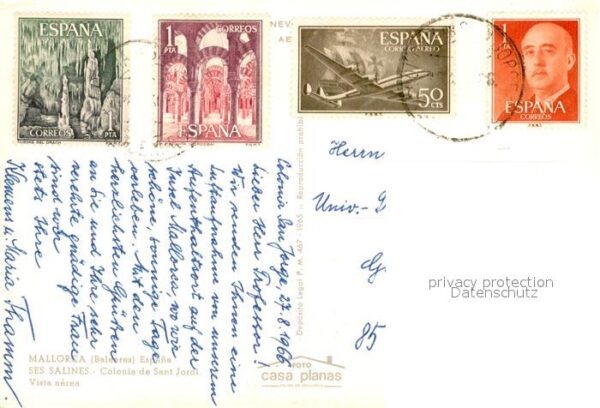 ESPAÑA
CORREOS 1 PTA
CUEVAS DEL DRACH
1 PTA
CORREOS
ESPAÑA
ESPAÑA
CORREO AEREO
50 CTS
1 PTA
ESPAÑA
CORREOS
Colonia San Jorge, 27.8.1966
Lieber Herr Professor!
Wir senden Ihnen eine
Luftaufnahme von unserem
Aufenthaltsort auf der
Insel Mallorca, wo wir
schöne, sonnige Tage
verleben. Mit den
herzlichsten Grüßen
an Sie und Ihre sehr
verehrte gnädige Frau
sind wir
stets Ihre
Klemens u. Maria Thamm.
Herrn
Univ.-
85
Depósito Legal P. M. 467 - 1965 - Reproducción prohibi
MALLORCA (Baleares) España
SES SALINES.- Colonia de Sant Jordi
Vista aérea
FOTO
casa planas
privacy protection
Datenschutz